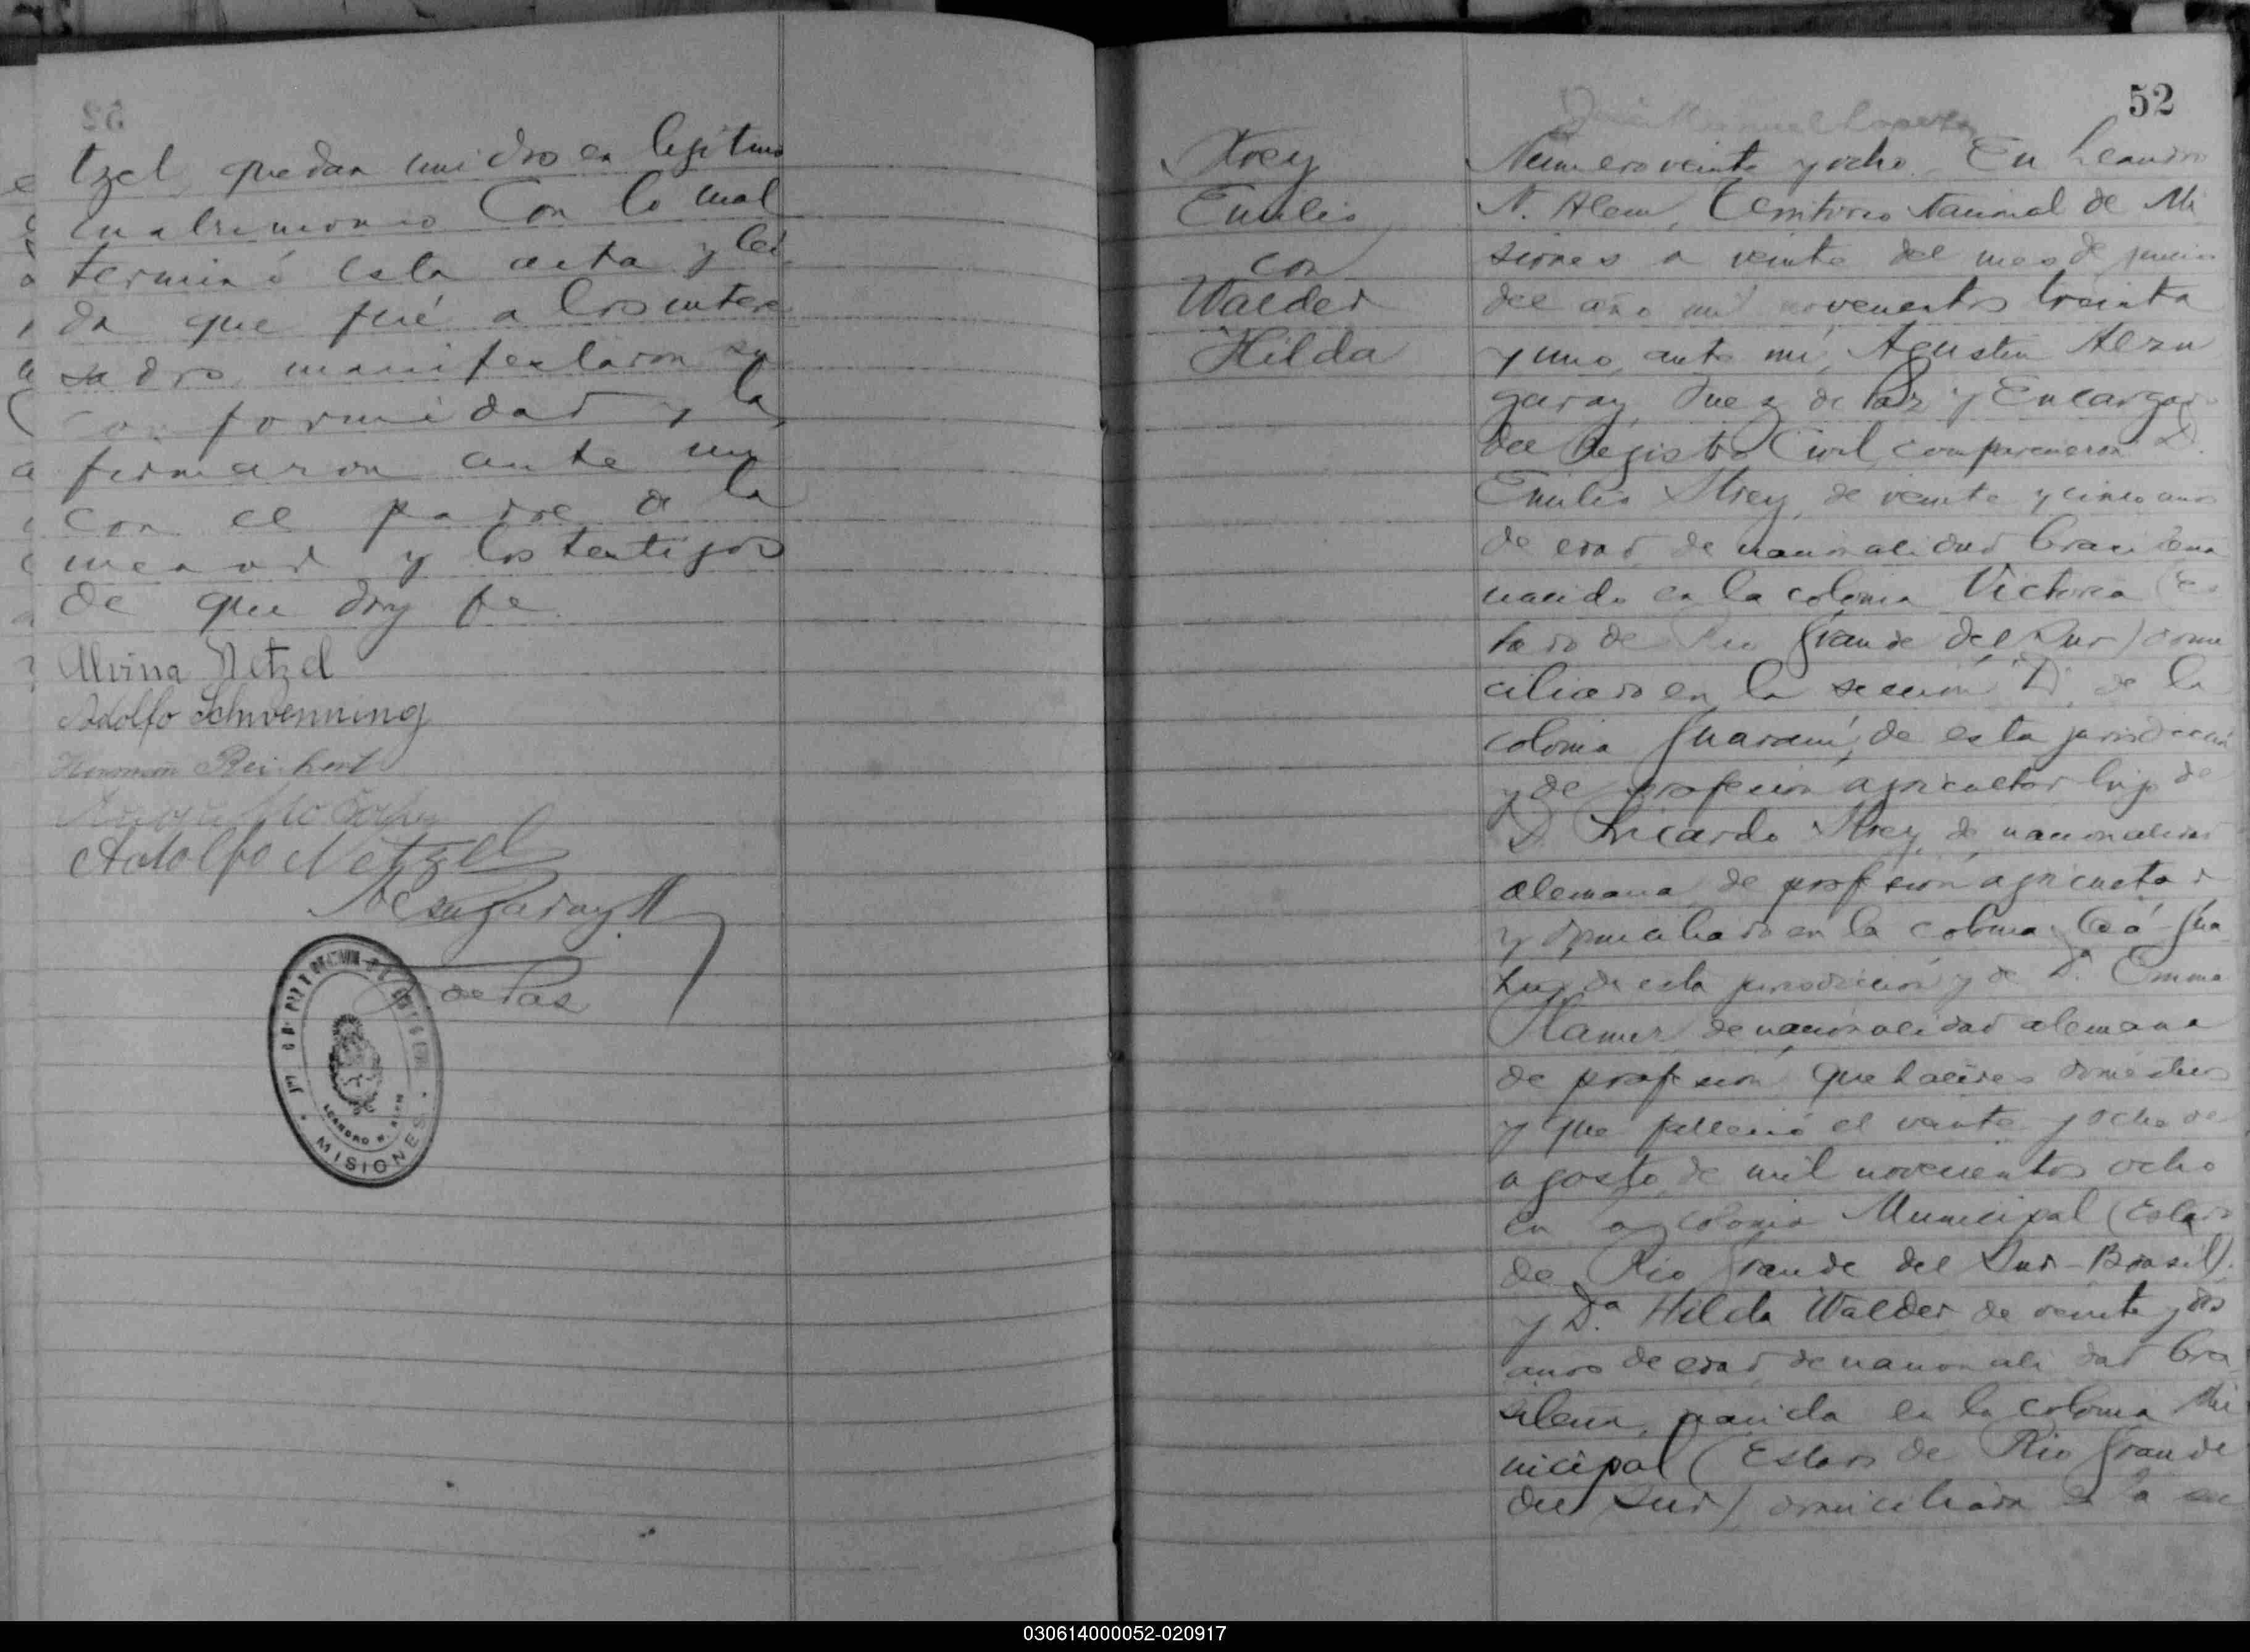 52
tzel, quedan unidos en legítimo
matrimonio Con lo cual
terminó esta acta y leí
da que fué a los intere
sados, manifestaron su
conformidad y la
firmaron ante mi
con el padre de la
menor y los testigos
de que doy fe.
Alvina Netzel
Adolfo Schwenning
Hermann Reichert
Adolfo Netzel
Alzugaray
J de Paz
LEANDRO N. ALEM
MISIONES
52
Strey
Emilio
con
Walder
Hilda
Numero veinte y ocho. En Leandro
N. Alem, Territorio Nacional de Mi
siones a veinte del mes de junio
del año mil novecientos treinta
y uno, ante mí, Agustin Alzu
garay, Juez de Paz y Encargado
del Registro Civil, comparecieron D.
Emilio Strey, de veinte y cinco años
de edad, de nacionalidad brasilena
nacido en la colonia Victoria (Es
tado de Rio Grande del Sur) domi
ciliado en la sección D, de la
colonia Guaraní, de esta jurisdicción
y de profesión agricultor hijo de
D. Ricardo Strey, de nacionalidad
alemana, de profesion agricultor
y domiciliado en la colonia Caá-Gua
huy de esta jurisdicción y de Dª. Emma
de nacionalidad alemana
de profesión quehaceres domésticos
y que falleció el veinte y ocho de
agosto de mil novecientos ocho
en la colonia Municipal (Estado
de Rio Grande del Sur-Brasil).
y D.ª Hilda Walder de veinte y dos
años de edad, de nacionalidad bra
silena, nacida en la colonia Mu
nicipal (Estado de Rio Grande
del Sur) domiciliada en la sec
030614000052-020917